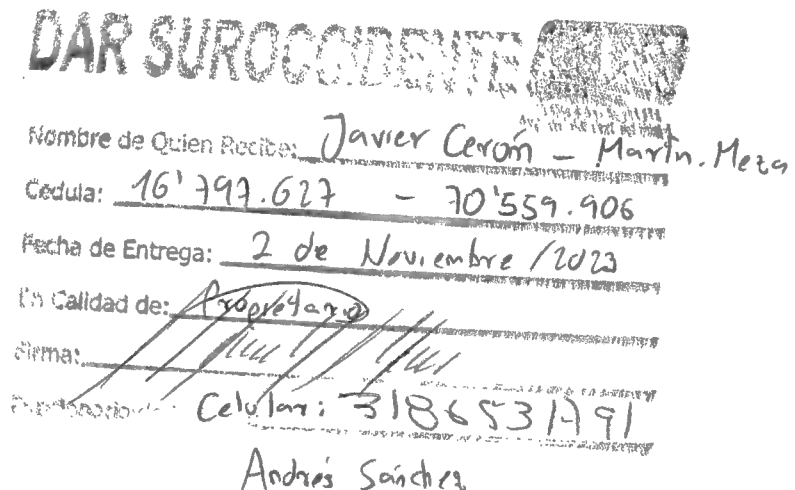 DAR SUROCCIDENTE
Nombre de Quien Recibe: Javier Cerón - Martín. Meza
Cedula: 16'797.627 - 70'559.906
Fecha de Entrega: 2 de Noviembre /2023
En Calidad de: Propietario
Firma:
Celular: 3186531791
Andrés Sánchez